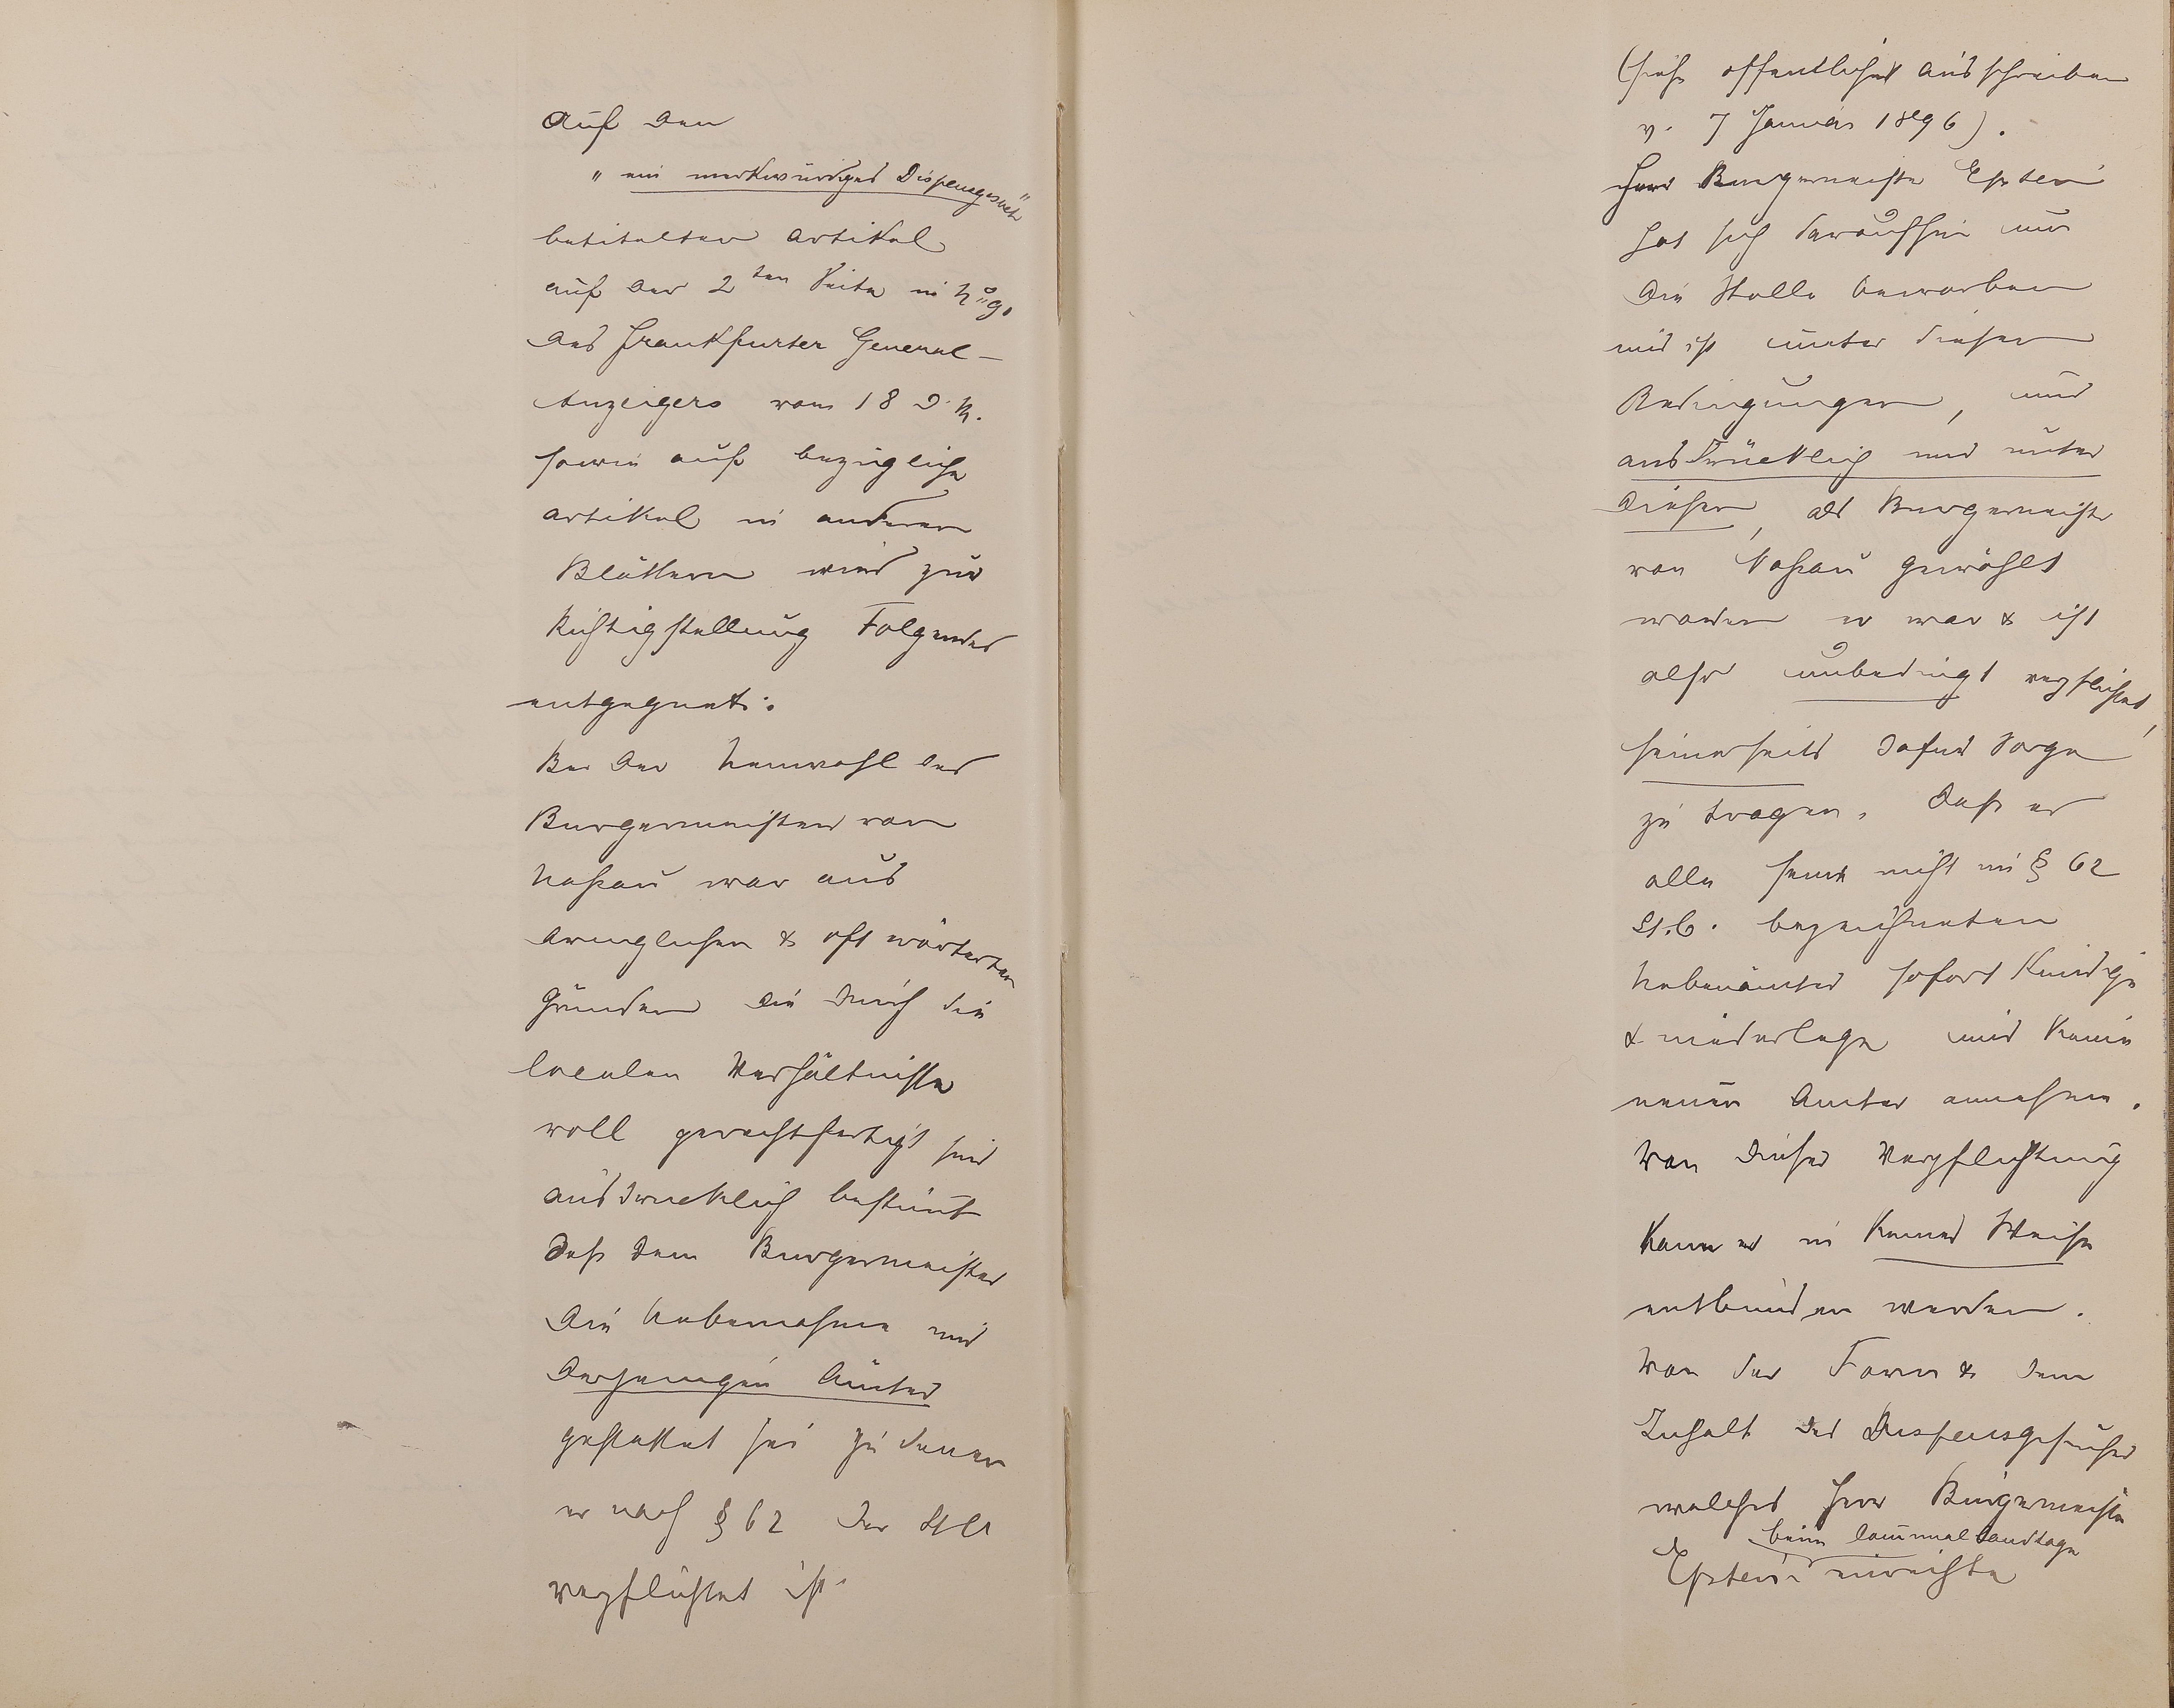 Auf den
"ein merkwürdiges Dispensgesuch"
betitelten Artikel
auf der 2ten Seite in No 91
des Frankfurter General-
Anzeigers vom 18 d. M.
sowie auf bezügliche
Artikel in anderen
Blättern wird zur
Richtigstellung Folgendes
entgegnet:
Bei der Neuwahl des
Burgermeisters von
Naßau war aus
dringlichen & oft erörterten
Gründen die durch die
localen Verhältnisse
voll gerechtfertigt sind
ausdrucklich bestimt
daß dem Burgermeister
die Uebernahme nur
derjenigen Ämter
gestattet sei zu denen
er nach § 62 der
verpflichtet ist.
(siehe offentliches Ausschreiben
v. 7 Januar 1896).
Herr Burgermeister Epstein
hat sich daraufhin um
die Stelle beworben
und ist unter diesen
Bedingungen, und
ausdrücklich nur unter
diesen, als Burgermeister
von Naßau gewählt
worden er war & ist
also unbedingt verpflichtet,
seinerseits dafur Sorge
zu tragen, daß er
alle seine nicht in § 62
bezeichneten
Nebenämter sofort kündige
& niederlege und keine
neuen Ämter annehme.
Von dieser Verpflichtung
kann er in keiner Weise
entbunden werden.
Von der Form & dem
Inhalt des Dispensgesuches
welches Herr Bürgermeister
beim Communallandtage
Epstein einreichte